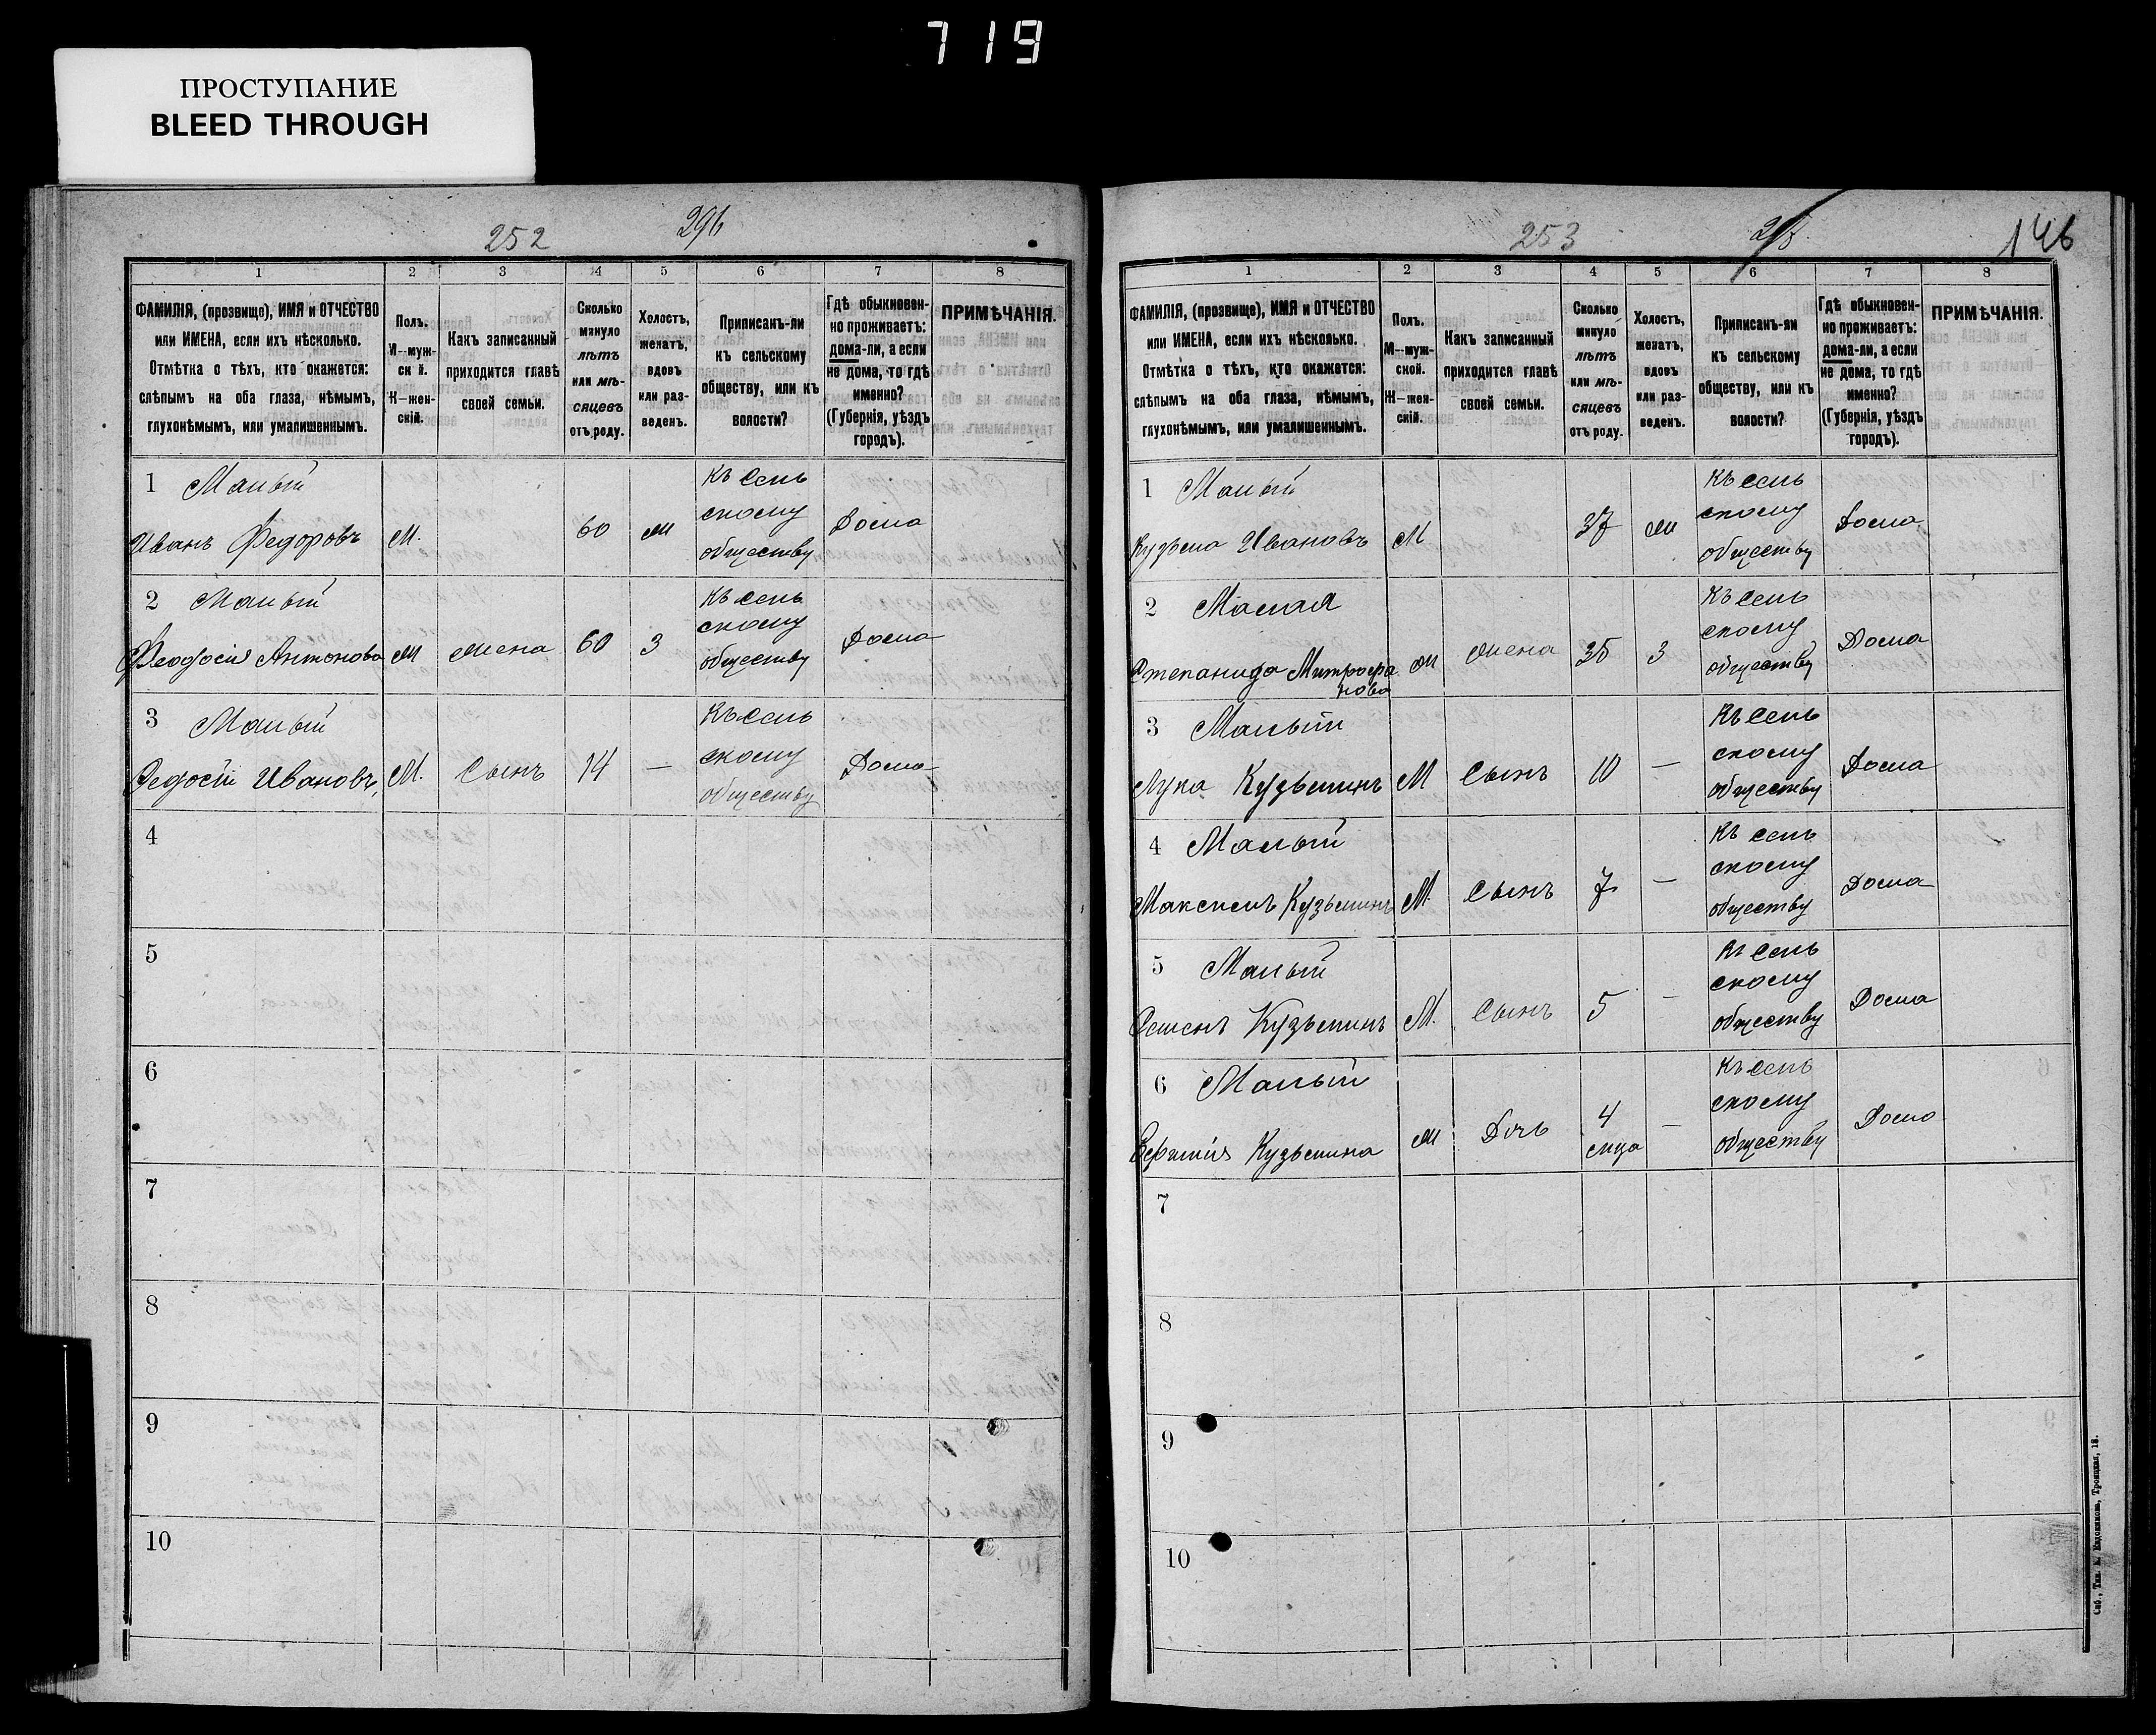 719
ПРОСТУПАНИЕ
BLEED THROUGH
252
296
1 2 3 4 5 6 7 8
ФАМИЛІЯ, (прозвище), ИМЯ и ОТЧЕСТВО или ИМЕНА, если ихъ нѣсколько. Отмѣтка о тѣхъ, кто окажется: слѣпымъ на оба глаза, нѣмымъ, глухонѣмымъ, или умалишеннымъ.
Полъ. М—муж-ской. Ж—жен-скій.
Какъ записанный приходится главѣ своей семьи.
Сколько минуло лѣтъ или мѣ-сяцевъ отъ роду.
Холостъ, женатъ, вдовъ или раз-веденъ.
Приписанъ-ли къ сельскому обществу, или къ волости?
Гдѣ обыкновен-но проживаетъ: дома-ли, а если не дома, то гдѣ именно? (Губернія, уѣздъ городъ).
ПРИМѢЧАНІЯ.
1 Малый
Иванъ Федоровъ М. 60 ж къ сель скому обществу Дома
2 Малый
Феодосія Антонова ж жена 60 З къ сель скому обществу Дома
3 Малый
Федосій Ивановъ М. сынъ 14 — къ сель скому обществу Дома
4
5
6
7
8
9
10
253
146
1 2 3 4 5 6 7 8
ФАМИЛІЯ, (прозвище), ИМЯ и ОТЧЕСТВО или ИМЕНА, если ихъ нѣсколько. Отмѣтка о тѣхъ, кто окажется: слѣпымъ на оба глаза, нѣмымъ, глухонѣмымъ, или умалишеннымъ.
Полъ. М—муж-ской. Ж—жен-скій.
Какъ записанный приходится главѣ своей семьи.
Сколько минуло лѣтъ или мѣ-сяцевъ отъ роду.
Холостъ, женатъ, вдовъ или раз-веденъ.
Приписанъ-ли къ сельскому обществу, или къ волости?
Гдѣ обыкновен-но проживаетъ: дома-ли, а если не дома, то гдѣ именно? (Губернія, уѣздъ городъ).
ПРИМѢЧАНІЯ.
1 Малый
Кузьма Ивановъ М 37 ж къ сель скому обществу Дома
2 Малая
Степанида Митрофа нова ж жена 35 З къ сель скому обществу Дома
3 Малый
Лука Кузьминъ М сынъ 10 — къ сель скому обществу Дома
4 Малый
Максимъ Кузьминъ М. сынъ 7 — къ сель скому обществу Дома
5 Малый
Семенъ Кузьминъ М. сынъ 5 — къ сель скому обществу Дома
6 Малый
Кузьмина ж Дочь 4 мца — къ сель скому обществу Дома
7
8
9
10
Спб., Тип. В. Евдокимова, Троицкая, 18.